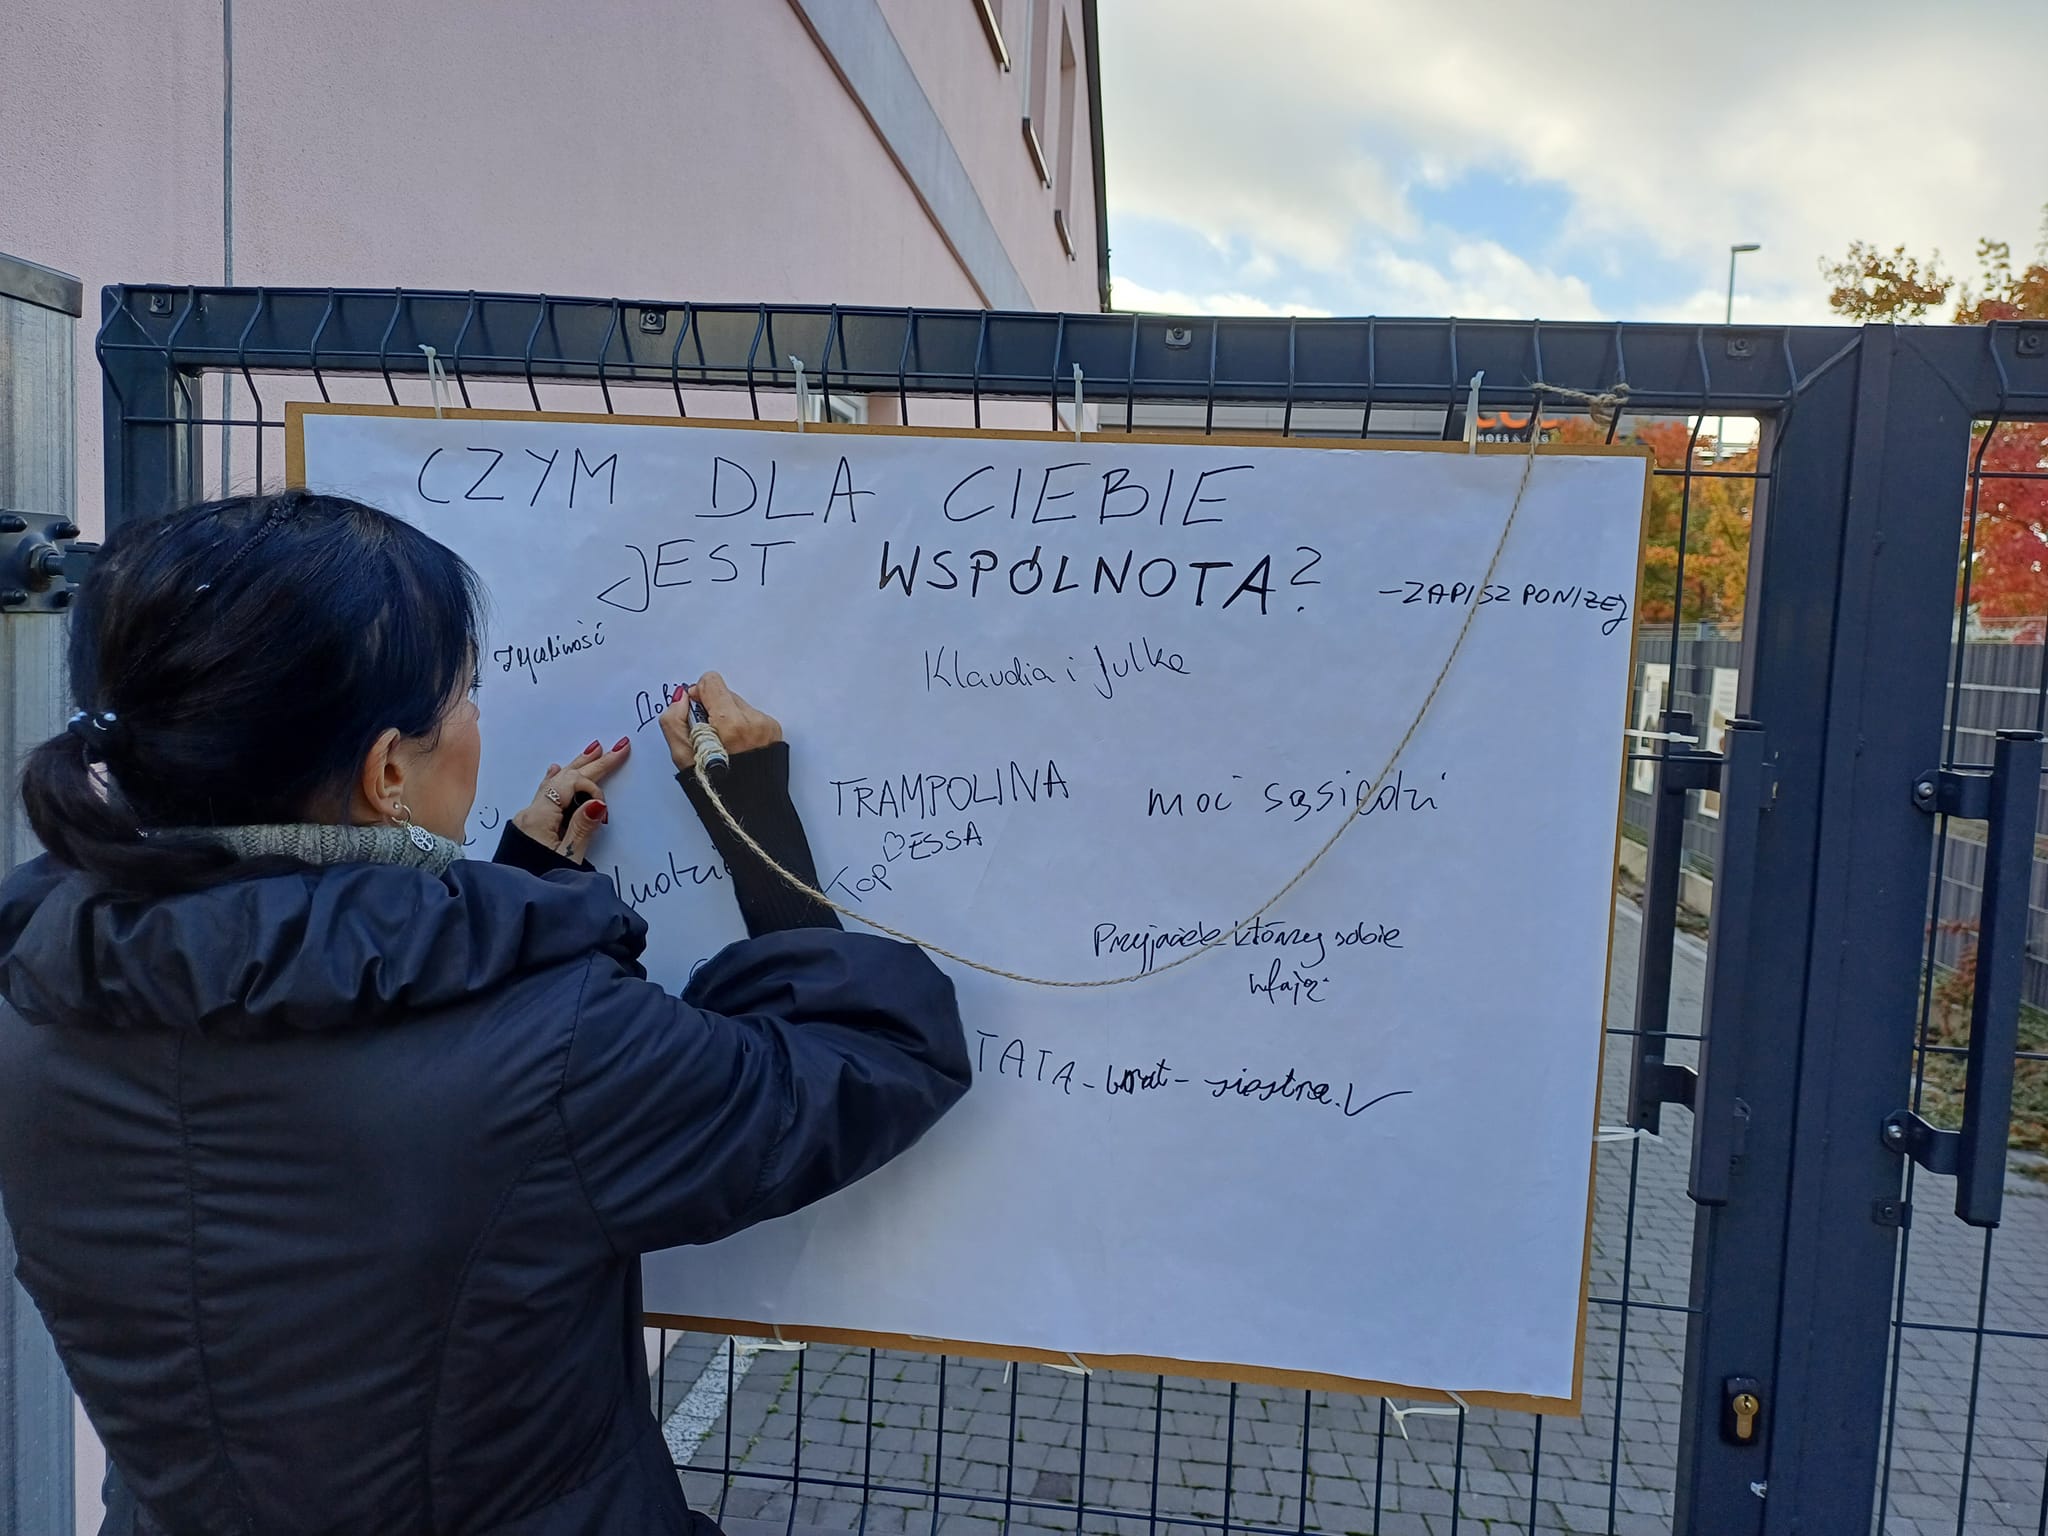 CZYM DLA CIEBIE
JEST WSPÓLNOTA?
-ZAPISZ PONIŻEJ
życzliwość
Klaudia i Julka
TRAMPOLINA
moi sąsiedzi
TOP BESSA
Przyjaciele którzy sobie
ufają.
TATA - brat - siostra.